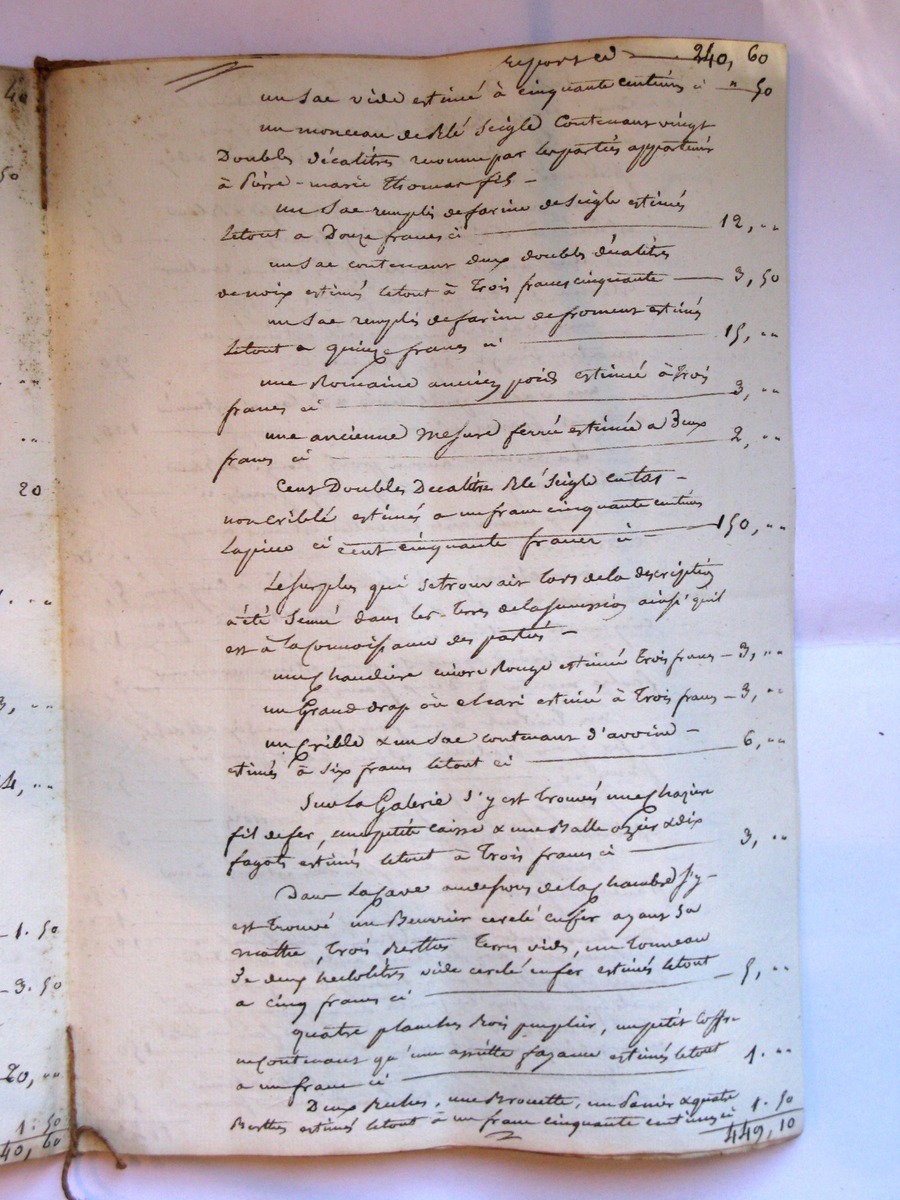 40
50
20
3,
4,
1. 50
3. 50
20, "
1. 50
40, 60
reportée 240, 60
un sac vide estimé à cinquante centimes ci " 50
un monceau de Blé Seigle Contenant vingt
Doubles décalitres reconnu par les parties appartenir
à Pierre-marie Thomas fils -
un Sac rempli de farine de Seigle estimés
le tout a Douze francs ci 12, "
un Sac contenant deux doubles décalitres
de noix estimés le tout à Trois francs cinquante 3, 50
un Sac rempli de farine de froment estimés
le tout a quinze francs ci 15, "
une Romaine anciens poids estimée à trois
francs ci 3, "
une ancienne Mesure ferrée estimée a Deux
francs ci 2, "
Cent Doubles Decalitres Blé Seigle en tas -
non criblé estimés a un franc cinquante centimes
la pièce ci cent cinquante francs ci 150, "
Le surplus qui se trouvait lors de la description
a été Semé dans les Terres de la succession ainsi qu'il
est à la Connoissance des parties -
une Chaudière cuivre Rouge estimée Trois francs - 3, "
un Grand drap estimé à Trois francs - 3, "
un Crible & un Sac contenant d'avoine -
estimés à six francs le tout ci 6, "
Sur La Galerie S'y est trouvés une
fil de fer, une petite caisse & une Balle & dix
fagots estimés le tout a Trois francs ci 3, "
Dans La Cave au dessous de la Chambre S'y -
est trouvé un Beurrier cerclé en fer ayant Sa
matte, trois Berthes Terres vides, un Tonneau
De deux hectolitres vide cerclé en fer estimés le tout
a cinq francs ci 5, "
quatre planches Bois peuplier, un petit Coffre
ne Contenant qu'une assiette fayance estimés le tout
a un franc ci 1. "
Deux Baches, une Brouette, un Panier & quatre
Berthes estimés le tout à un franc cinquante centimes ci 1. 50
449, 10